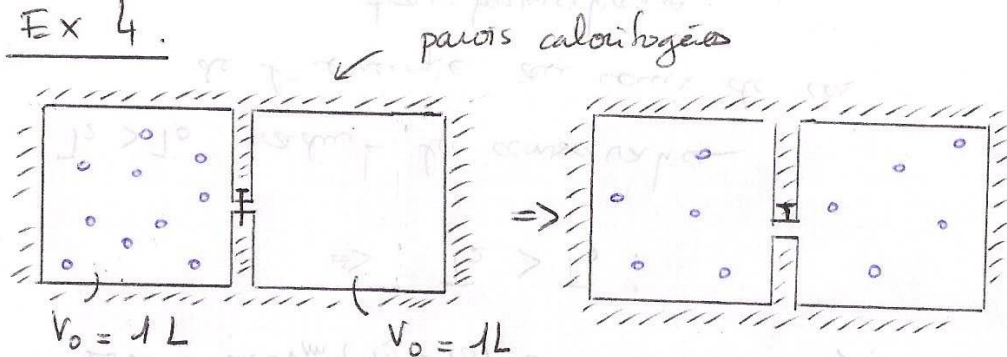 Ex 4.
parois calorifugées
=>
V₀ = 1 L V₀ = 1 L